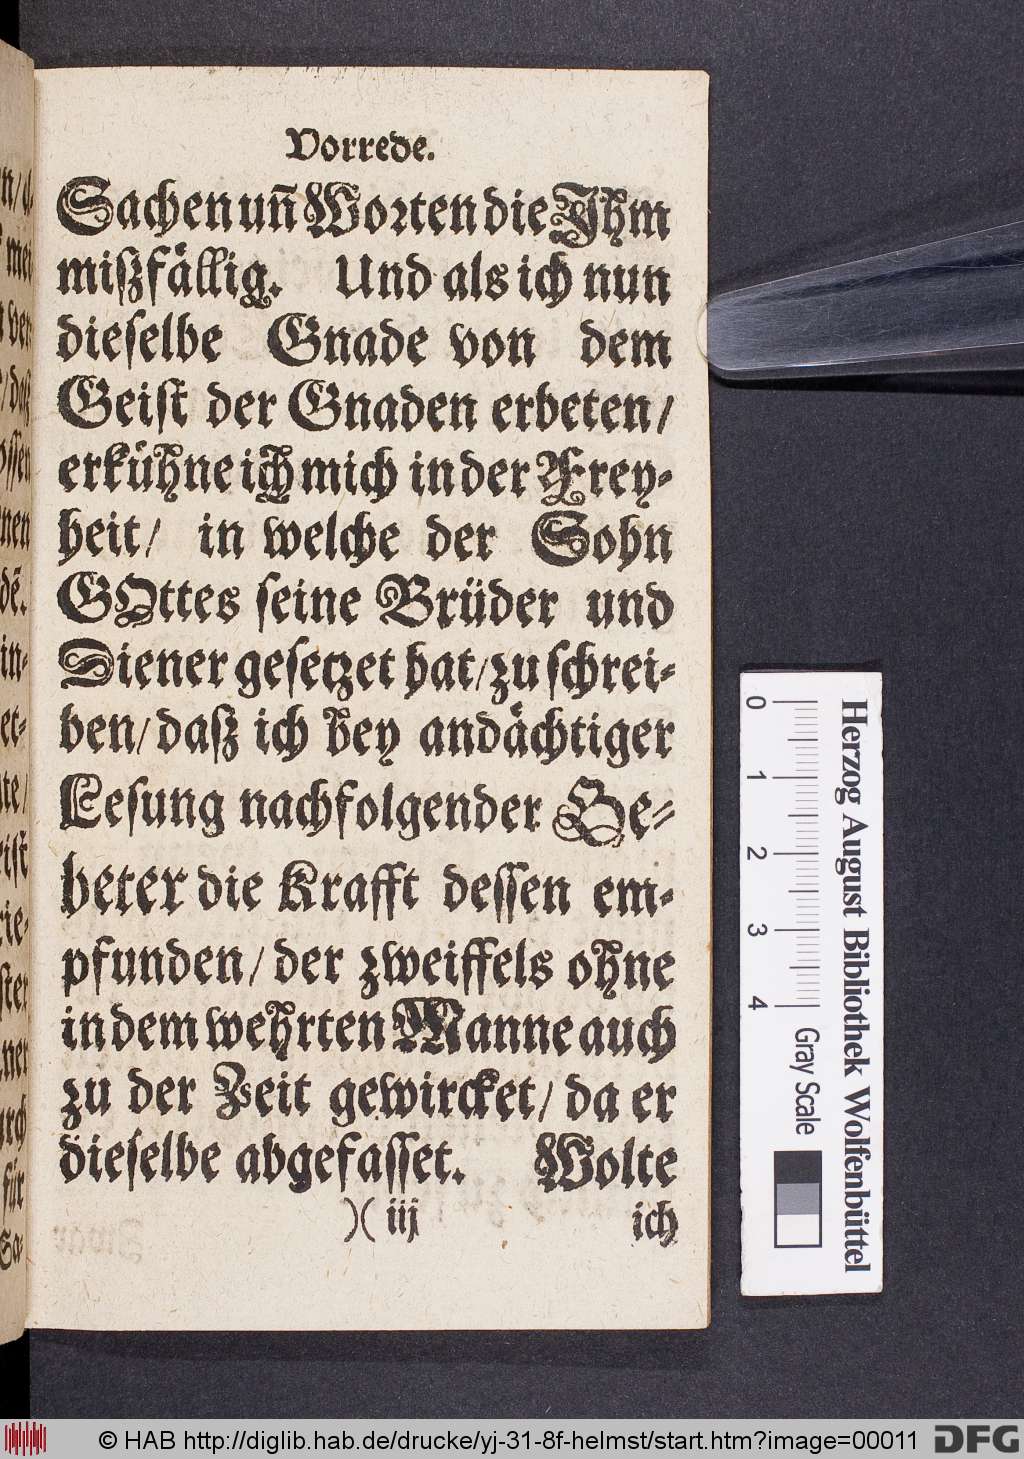 Vorrede.
Sachen uñ Worten die Jhm
mißfällig. Und als ich nun
dieselbe Gnade von dem
Geist der Gnaden erbeten/
erkühne ich mich in der Frey-
heit/ in welche der Sohn
GOttes seine Brüder und
Diener gesetzet hat/ zu schrei-
ben/ daß ich bey andächtiger
Lesung nachfolgender Ge-
beter die Krafft dessen em-
pfunden/ der zweiffels ohne
in dem wehrten Manne auch
zu der Zeit gewircket/ da er
dieselbe abgefasset. Wolte
)( iij
ich
0 1 2 3 4
Gray Scale
Herzog August Bibliothek Wolfenbüttel
© HAB http://diglib.hab.de/drucke/yj-31-8f-helmst/start.htm?image=00011
DFG